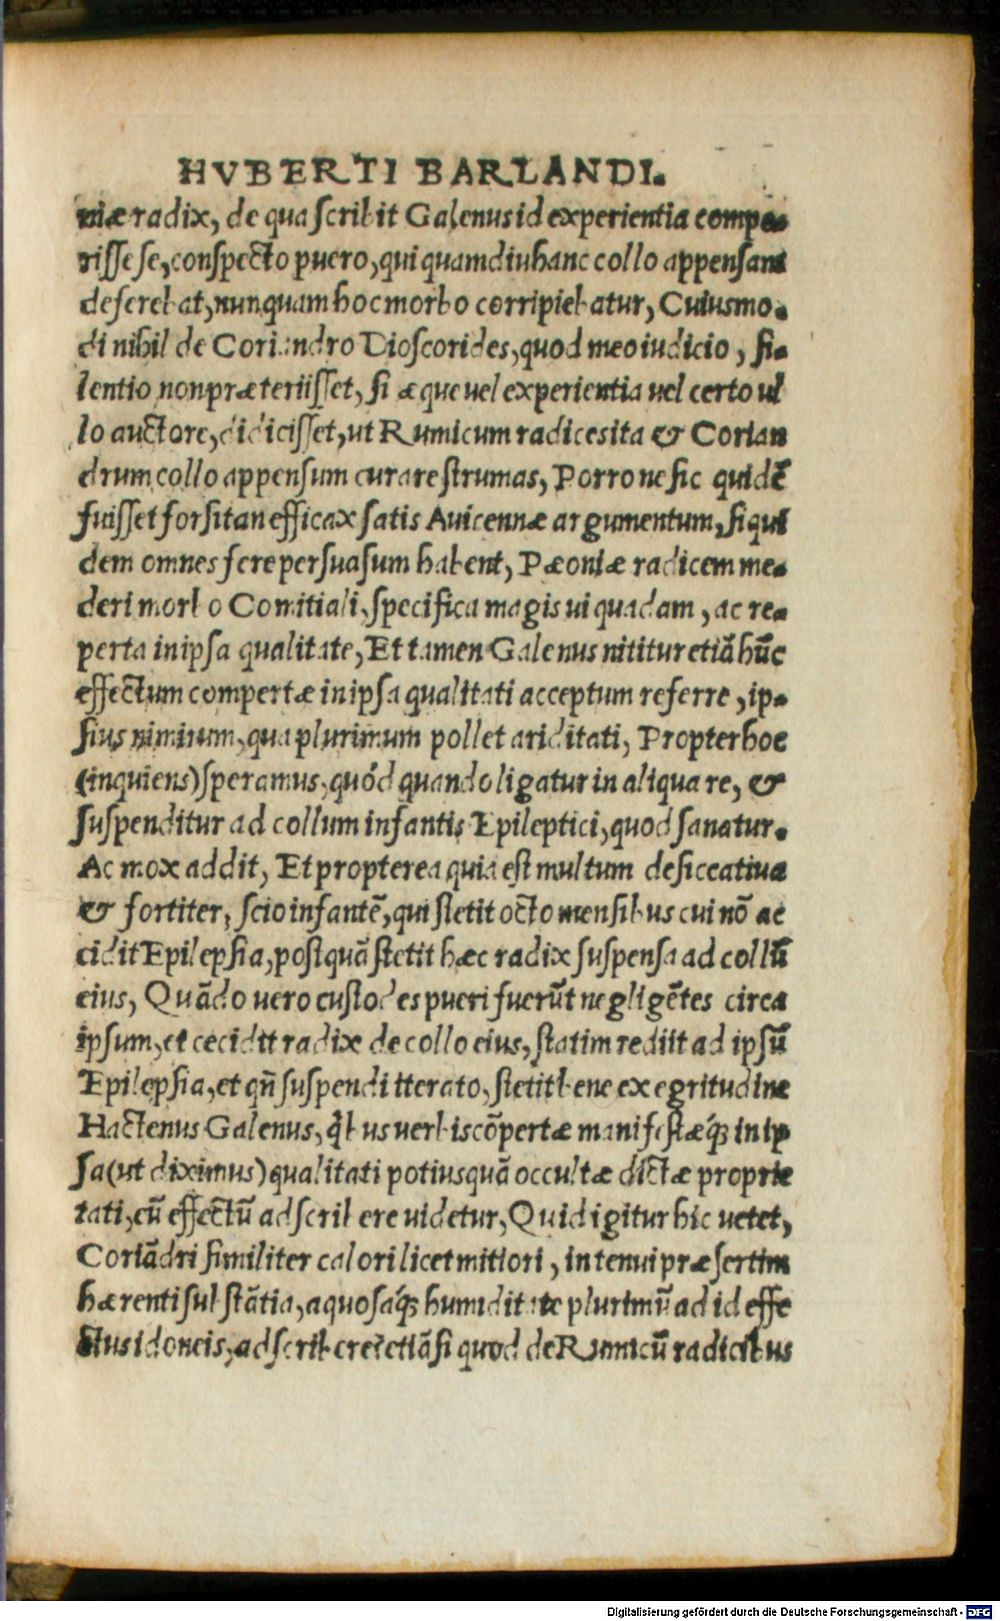 HVBERTI BARLANDI.
niæ radix, de qua scribit Galenus id experientia compe-
risse se, conspecto puero, qui quamdiu hanc collo appensam
deferebat, nunquam hoc morbo corripiebatur, Cuiusmo-
di nihil de Coriandro Dioscorides, quod meo iudicio, si-
lentio non præteriisset, si æque vel experientia vel certo ul
lo auctore, didicisset, ut Rumicum radices ita & Corian
drum collo appensum curare strumas, Porro ne sic quidē
fuisset forsitan efficax satis Auicennæ argumentum, si qui
dem omnes fere persuasum habent, Pæoniæ radicem me-
deri morbo Comitiali, specifica magis ui quadam, ac re-
perta in ipsa qualitate, Et tamen Galenus nititur etiā hūc
effectum compertæ in ipsa qualitati acceptum referre, ip-
sius nimirum, qua plurimum pollet ariditati, Propter hoc
(inquiens) speramus, quód quando ligatur in aliqua re, &
suspenditur ad collum infantis Epileptici, quod sanatur.
Ac mox addit, Et propterea quia est multum desiccatiua
& fortiter, scio infantē, qui stetit octo mensibus cui nō ac
cidit Epilepsia, postquā stetit hæc radix suspensa ad collū
eius, Quādo uero custodes pueri fuerūt negligētes circa
ipsum, et cecidit radix de collo eius, statim rediit ad ipsū
Epilepsia, et qñ suspendi iterato, stetit bene ex egritudine
Hactenus Galenus, q̓bus uerbis cōpertæ manifestæq́; in ip
sa (ut diximus) qualitati potiusquā occultæ dictæ proprie
tati, cū effectū adscribere uidetur, Quid igitur hic uetet,
Coriādri similiter calori licet mitiori, in tenui præsertim
hærenti substātia, aquosaq́; humiditate plurimū ad id effe
ctus idoneis, adscribere? etiāsi quod de Rumicū radicibus
Digitalisierung gefördert durch die Deutsche Forschungsgemeinschaft - DFG